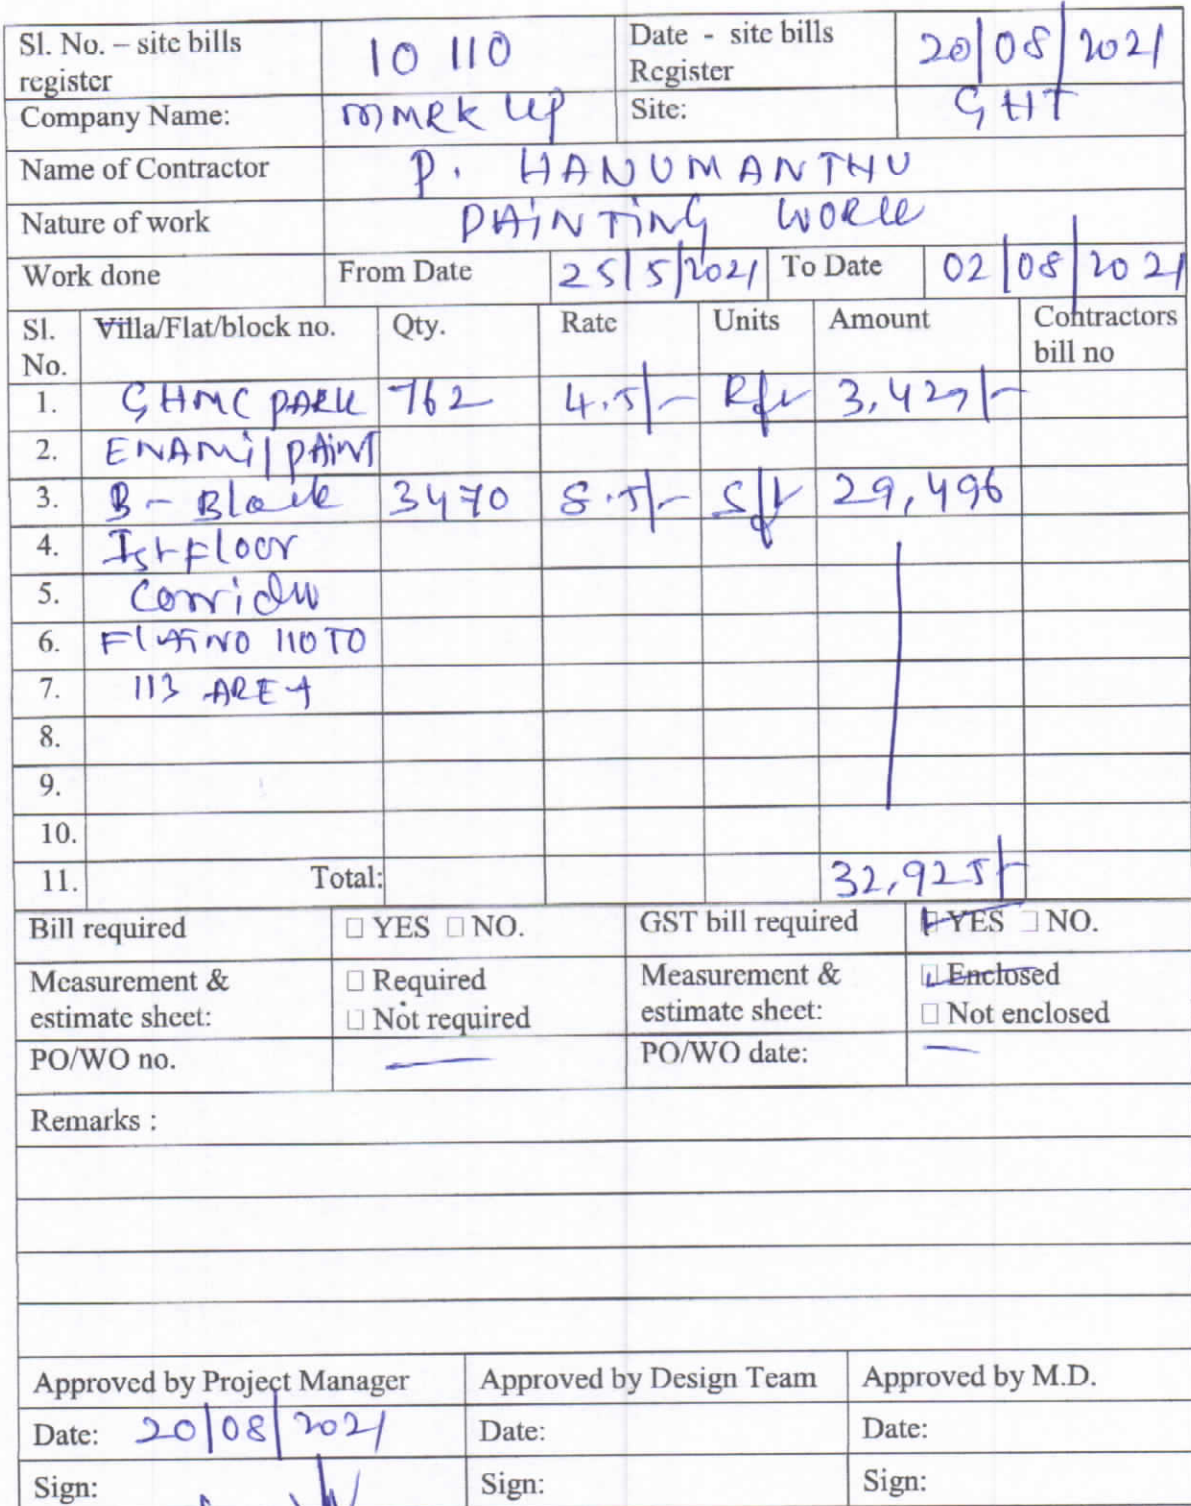 Sl. No. – site bills register 10 110 Date - site bills Register 20/08/2021
Company Name: MMRK LLP Site: GHT
Name of Contractor P. HANUMANTHU
Nature of work PAiNTiNG WORK
Work done From Date 25/5/2021 To Date 02/08/2021
Sl. No. Villa/Flat/block no. Qty. Rate Units Amount Contractors bill no
1. GHMC PARK 762 4.5/- Rft 3,429/-
2. ENAMil PAiNT
3. B - Block 3470 8.5/- Sft 29,496
4. Ist Floor
5. Corridor
6. FLAT NO 110 TO
7. 113 AREA
8.
9.
10.
11. Total: 32,925/-
Bill required □ YES □ NO. GST bill required □ YES □ NO.
Measurement & estimate sheet: □ Required □ Not required Measurement & estimate sheet: □ Enclosed □ Not enclosed
PO/WO no. — PO/WO date: —
Remarks :
Approved by Project Manager Approved by Design Team Approved by M.D.
Date: 20/08/2021 Date: Date:
Sign: Sign: Sign: